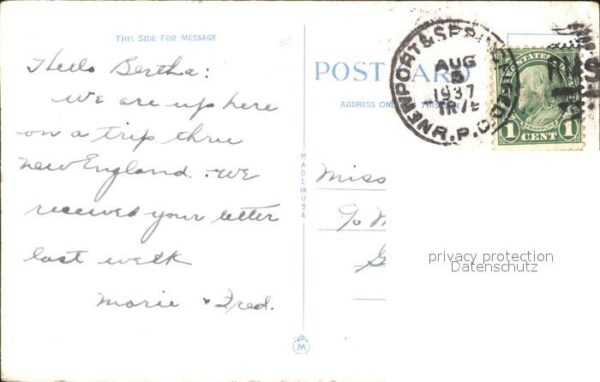 THIS SIDE FOR MESSAGE
Hello Bertha:
We are up here
on a trip thru
new England. We
received your letter
last week
Marie & Fred.
MADE IN USA
POST CARD
ADDRESS ON THIS SIDE
NEWPORT & SPRING
R.P.O.
AUG
5
1937
TR 75
UNITED STATES
1 CENT 1
Miss
c/o M
privacy protection
Datenschutz